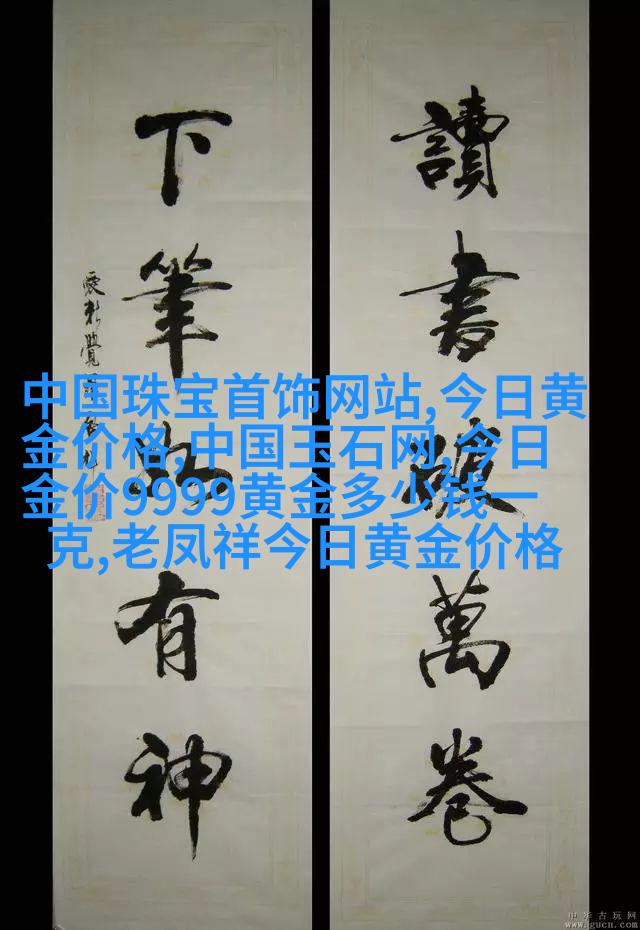 讀書破萬卷
下筆如有神
中国珠宝首饰网站,今日黄
金价格,中国玉石网,今日
金价9999黄金多少钱一
克,老凤祥今日黄金价格
中华古玩网
www.gucn.com